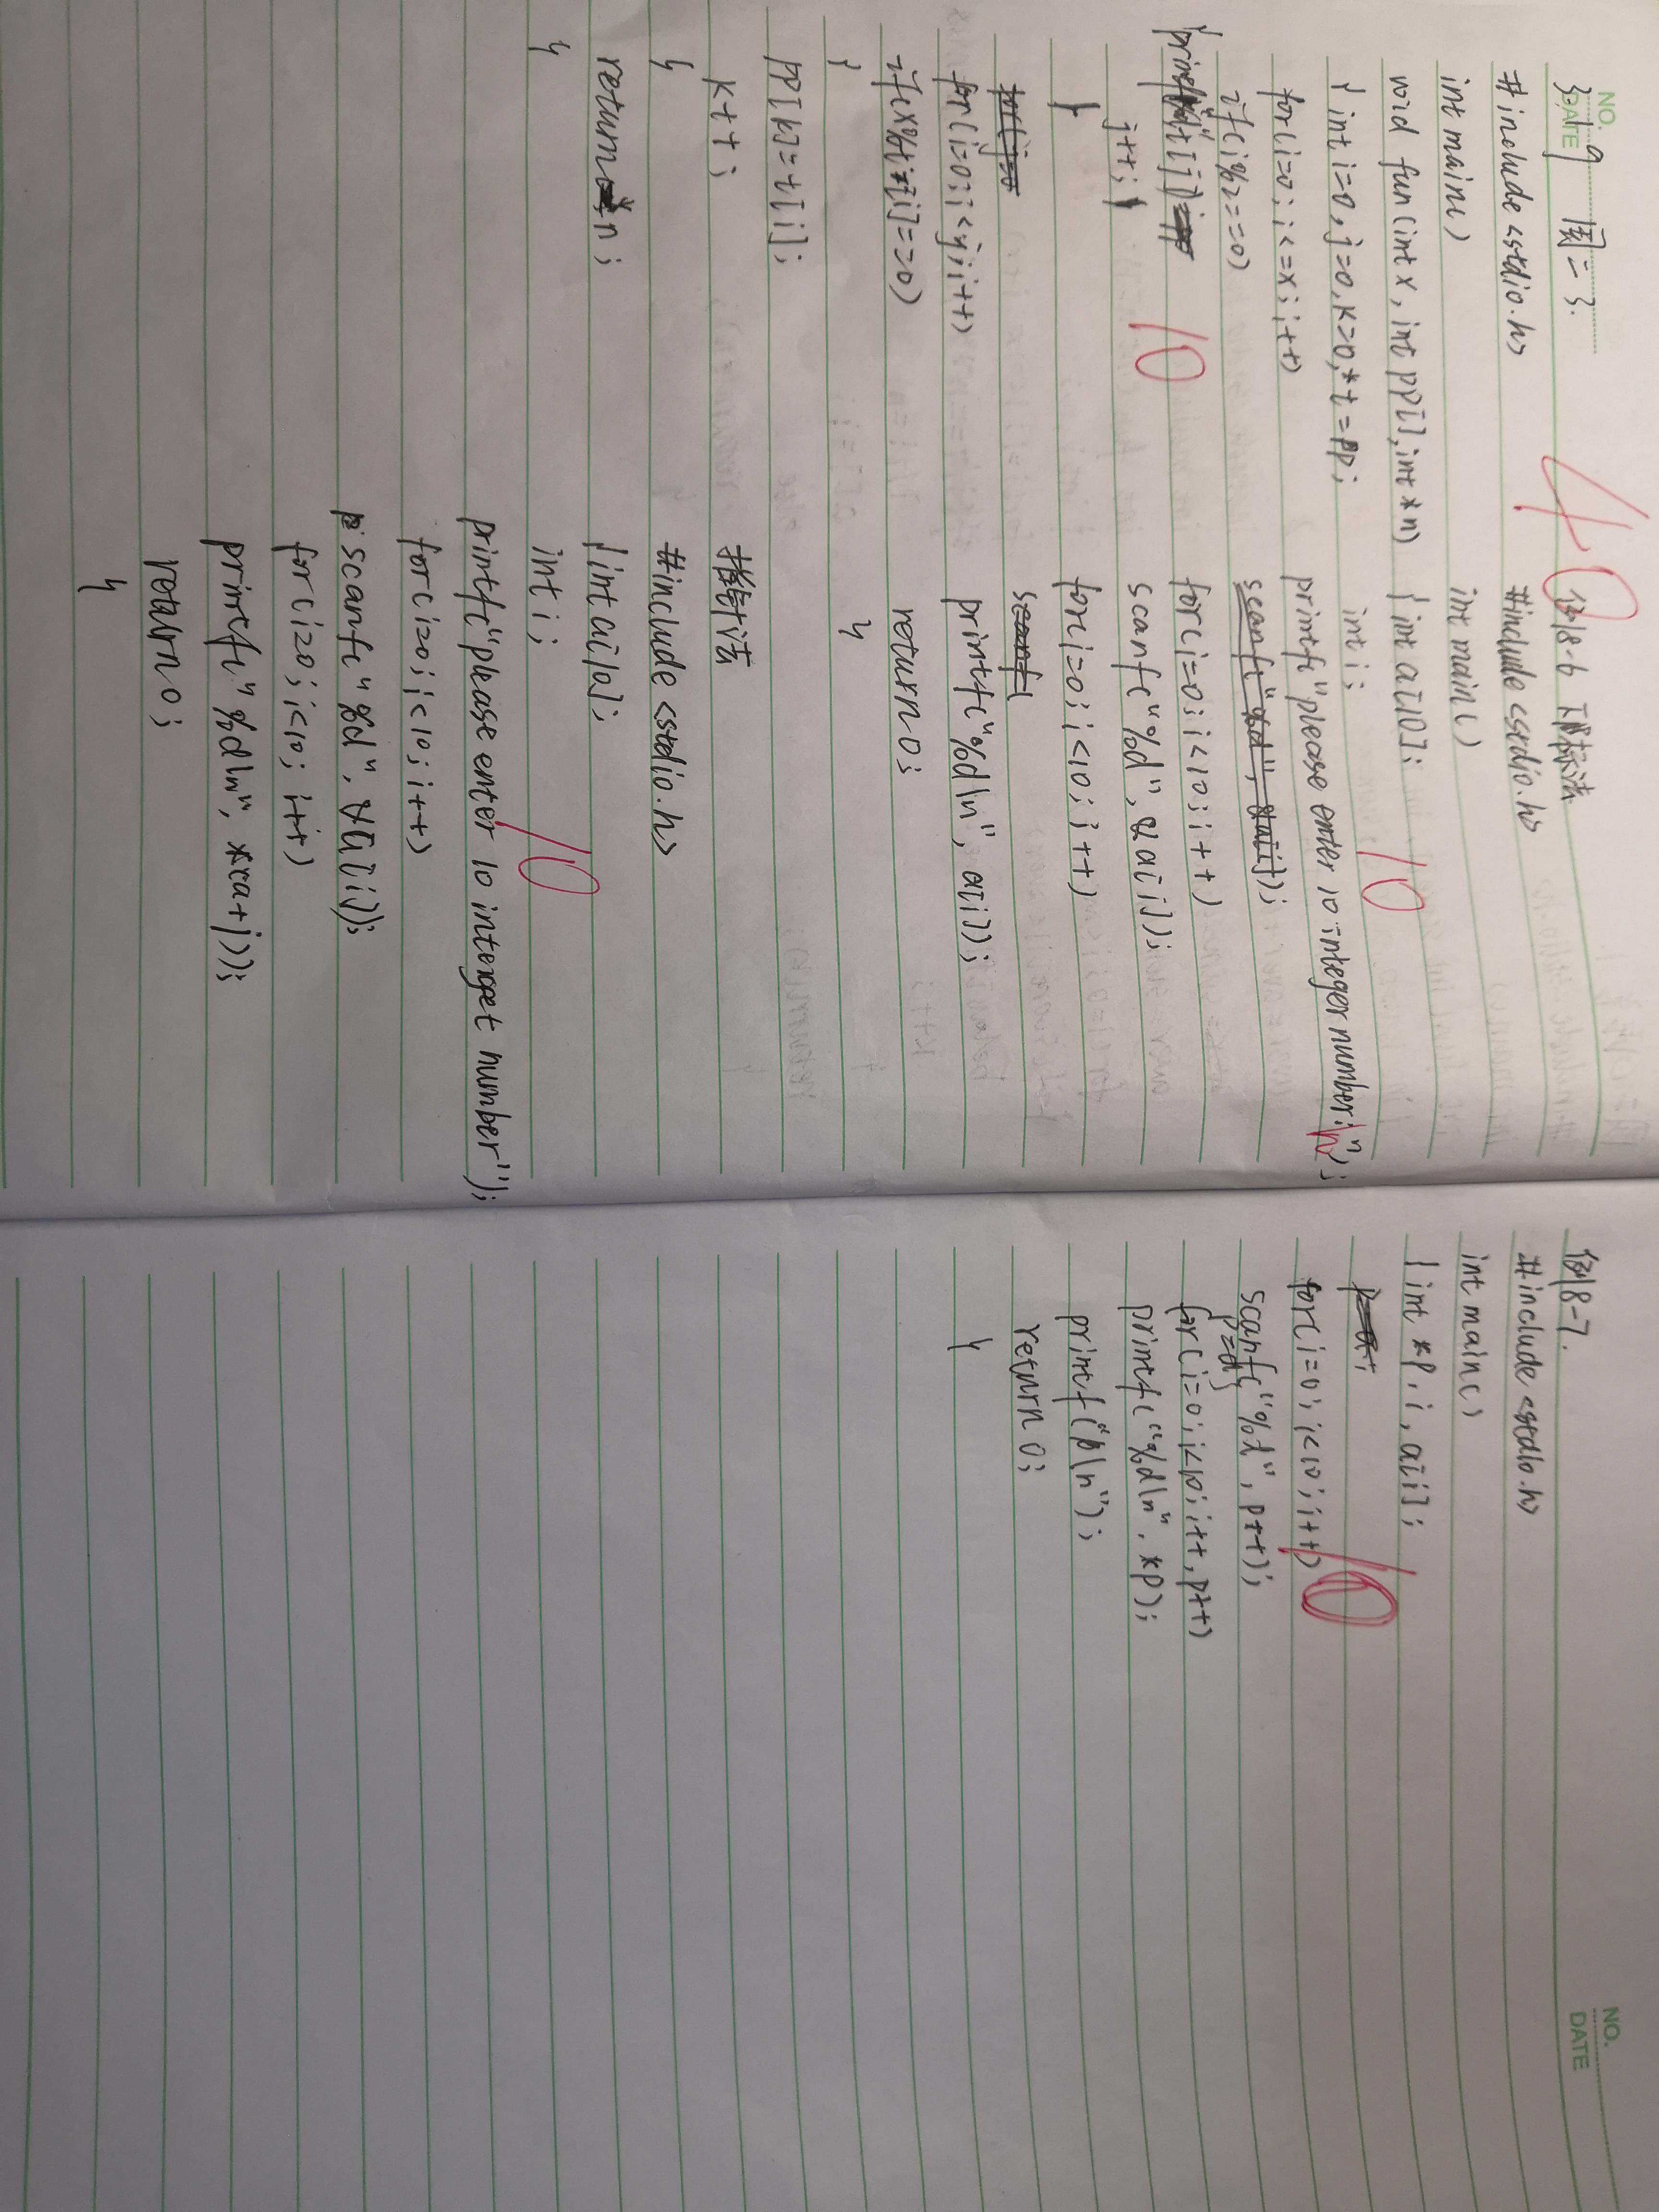 NO.
DATE
3.19 周二 3.
40
#include<stdio.h>
int main()
void fun(int x, int pp[], int *n)
{ int i=0, j=0, k=0, *t=pp;
for(i=0; i<=x; i++)
if(i%2==0)
j++; }
10
for(i=0; i<y; i++)
if(x%t[i]==0)
{
pp[k]=t[i];
k++;
}
return n;
}
例8.6 下标法
#include<stdio.h>
int main()
{ int a[10];
int i;
10
printf("please enter 10 integer number:\n");
scanf("%d", &a[i]);
for(i=0; i<10; i++)
scanf("%d", &a[i]);
for(i=0; i<10; i++)
scanf(
printf("%d\n", a[i]);
return 0;
}
指针法
#include<stdio.h>
{int a[10];
int i;
10
printf("please enter 10 interget number");
for(i=0; i<10; i++)
scanf("%d", &a[i]);
for(i=0; i<10; i++)
printf("%d\n", *(a+i));
return 0;
}
NO.
DATE
例8-7.
#include<stdio.h>
int main()
{ int *p, i, a[i];
p=a;
for(i=0; i<10; i++)
10
scanf("%d", p++);
p=a;
for(i=0; i<10; i++, p++)
printf("%d\n", *p);
printf("\n");
return 0;
}